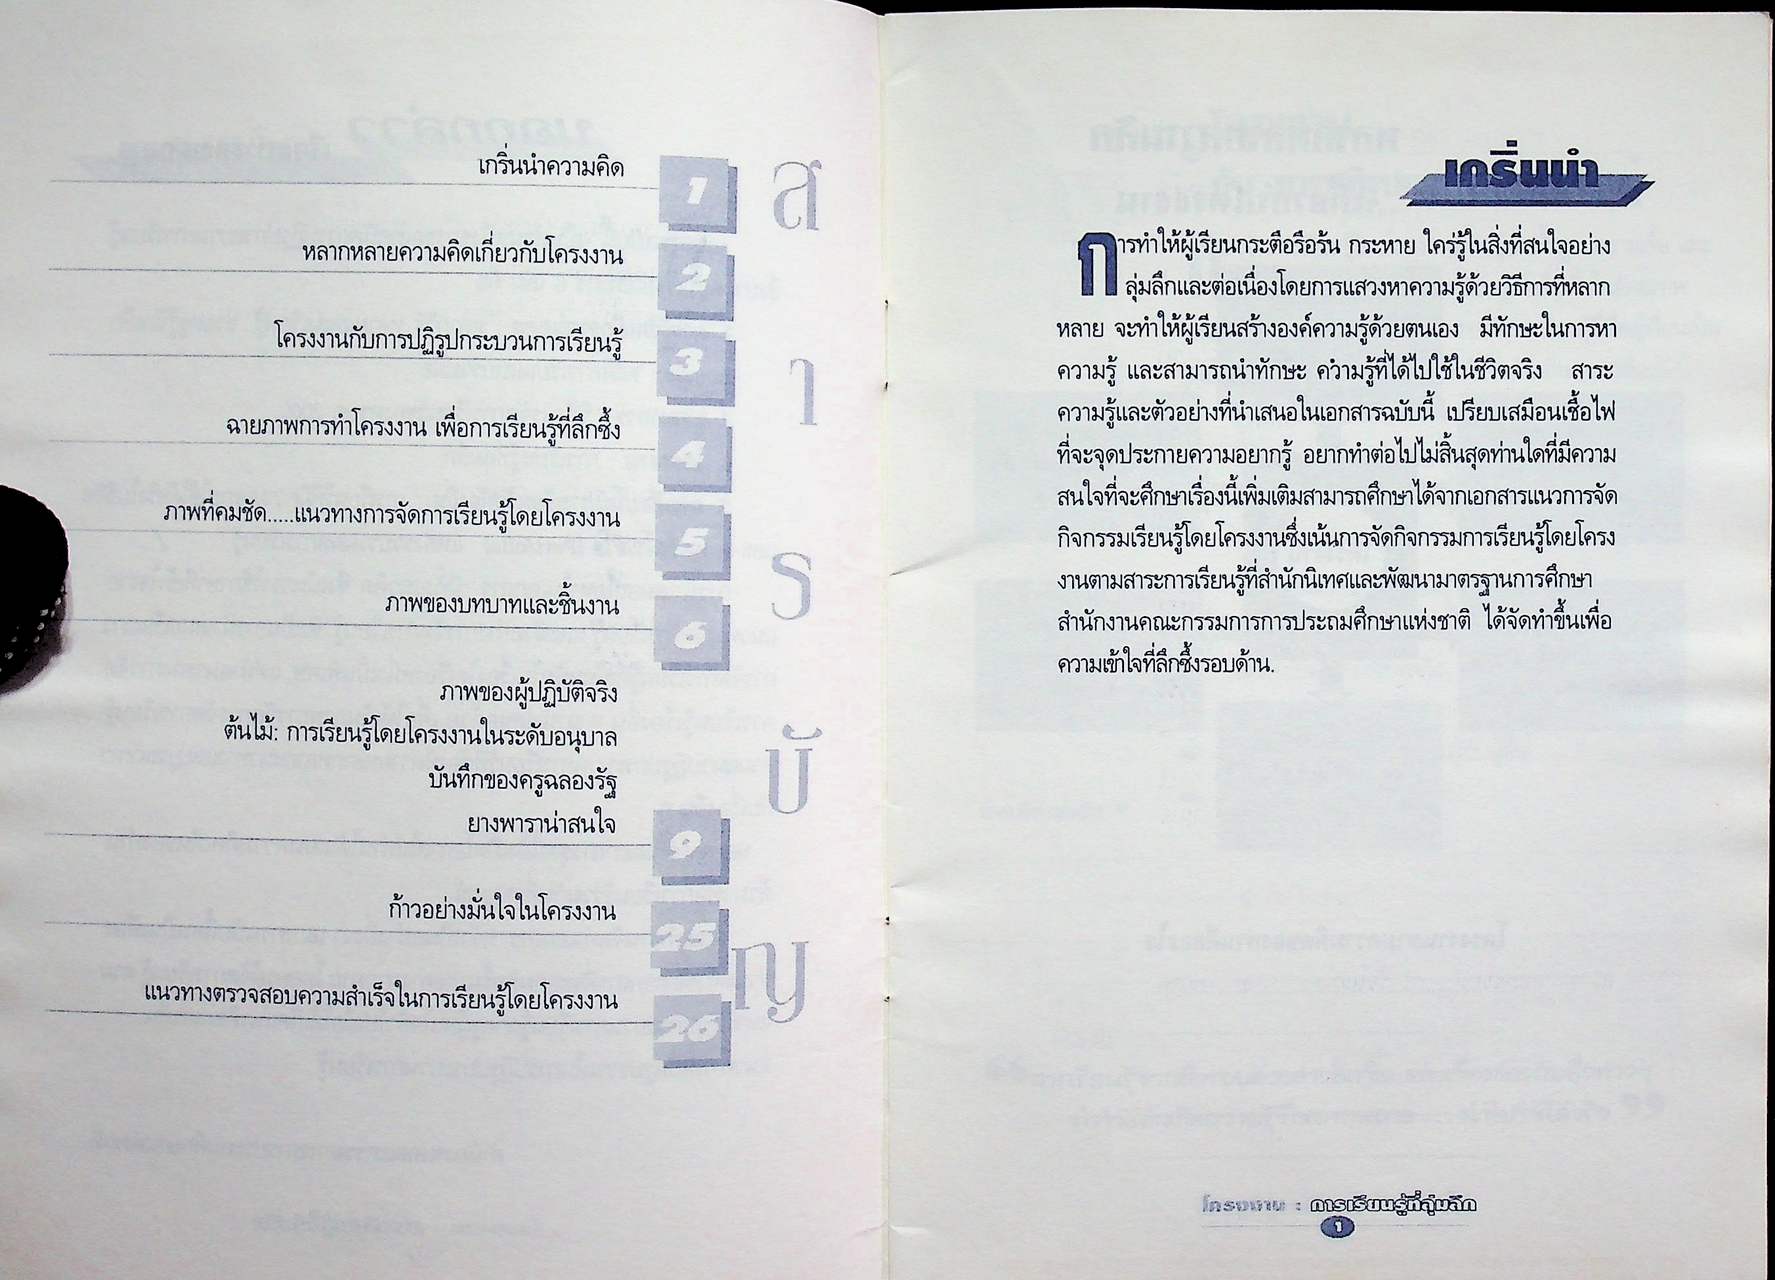 สารบัญ
เกริ่นนำความคิด 1
หลากหลายความคิดเกี่ยวกับโครงงาน 2
โครงงานกับการปฏิรูปกระบวนการเรียนรู้ 3
ฉายภาพการทำโครงงาน เพื่อการเรียนรู้ที่ลึกซึ้ง 4
ภาพที่คมชัด.....แนวทางการจัดการเรียนรู้โดยโครงงาน 5
ภาพของบทบาทและชิ้นงาน 6
ภาพของผู้ปฏิบัติจริง
ต้นไม้: การเรียนรู้โดยโครงงานในระดับอนุบาล
บันทึกของครูฉลองรัฐ
ยางพาราน่าสนใจ 9
ก้าวอย่างมั่นใจในโครงงาน 25
แนวทางตรวจสอบความสำเร็จในการเรียนรู้โดยโครงงาน 26
เกริ่นนำ
การทำให้ผู้เรียนกระตือรือร้น กระหาย ใคร่รู้ในสิ่งที่สนใจอย่าง
ลุ่มลึกและต่อเนื่องโดยการแสวงหาความรู้ด้วยวิธีการที่หลาก
หลาย จะทำให้ผู้เรียนสร้างองค์ความรู้ด้วยตนเอง มีทักษะในการหา
ความรู้ และสามารถนำทักษะ ความรู้ที่ได้ไปใช้ในชีวิตจริง สาระ
ความรู้และตัวอย่างที่นำเสนอในเอกสารฉบับนี้ เปรียบเสมือนเชื้อไฟ
ที่จะจุดประกายความอยากรู้ อยากทำต่อไปไม่สิ้นสุดท่านใดที่มีความ
สนใจที่จะศึกษาเรื่องนี้เพิ่มเติมสามารถศึกษาได้จากเอกสารแนวการจัด
กิจกรรมเรียนรู้โดยโครงงานซึ่งเน้นการจัดกิจกรรมการเรียนรู้โดยโครง
งานตามสาระการเรียนรู้ที่สำนักนิเทศและพัฒนามาตรฐานการศึกษา
สำนักงานคณะกรรมการการประถมศึกษาแห่งชาติ ได้จัดทำขึ้นเพื่อ
ความเข้าใจที่ลึกซึ้งรอบด้าน.
โครงงาน : การเรียนรู้ที่ลุ่มลึก
1